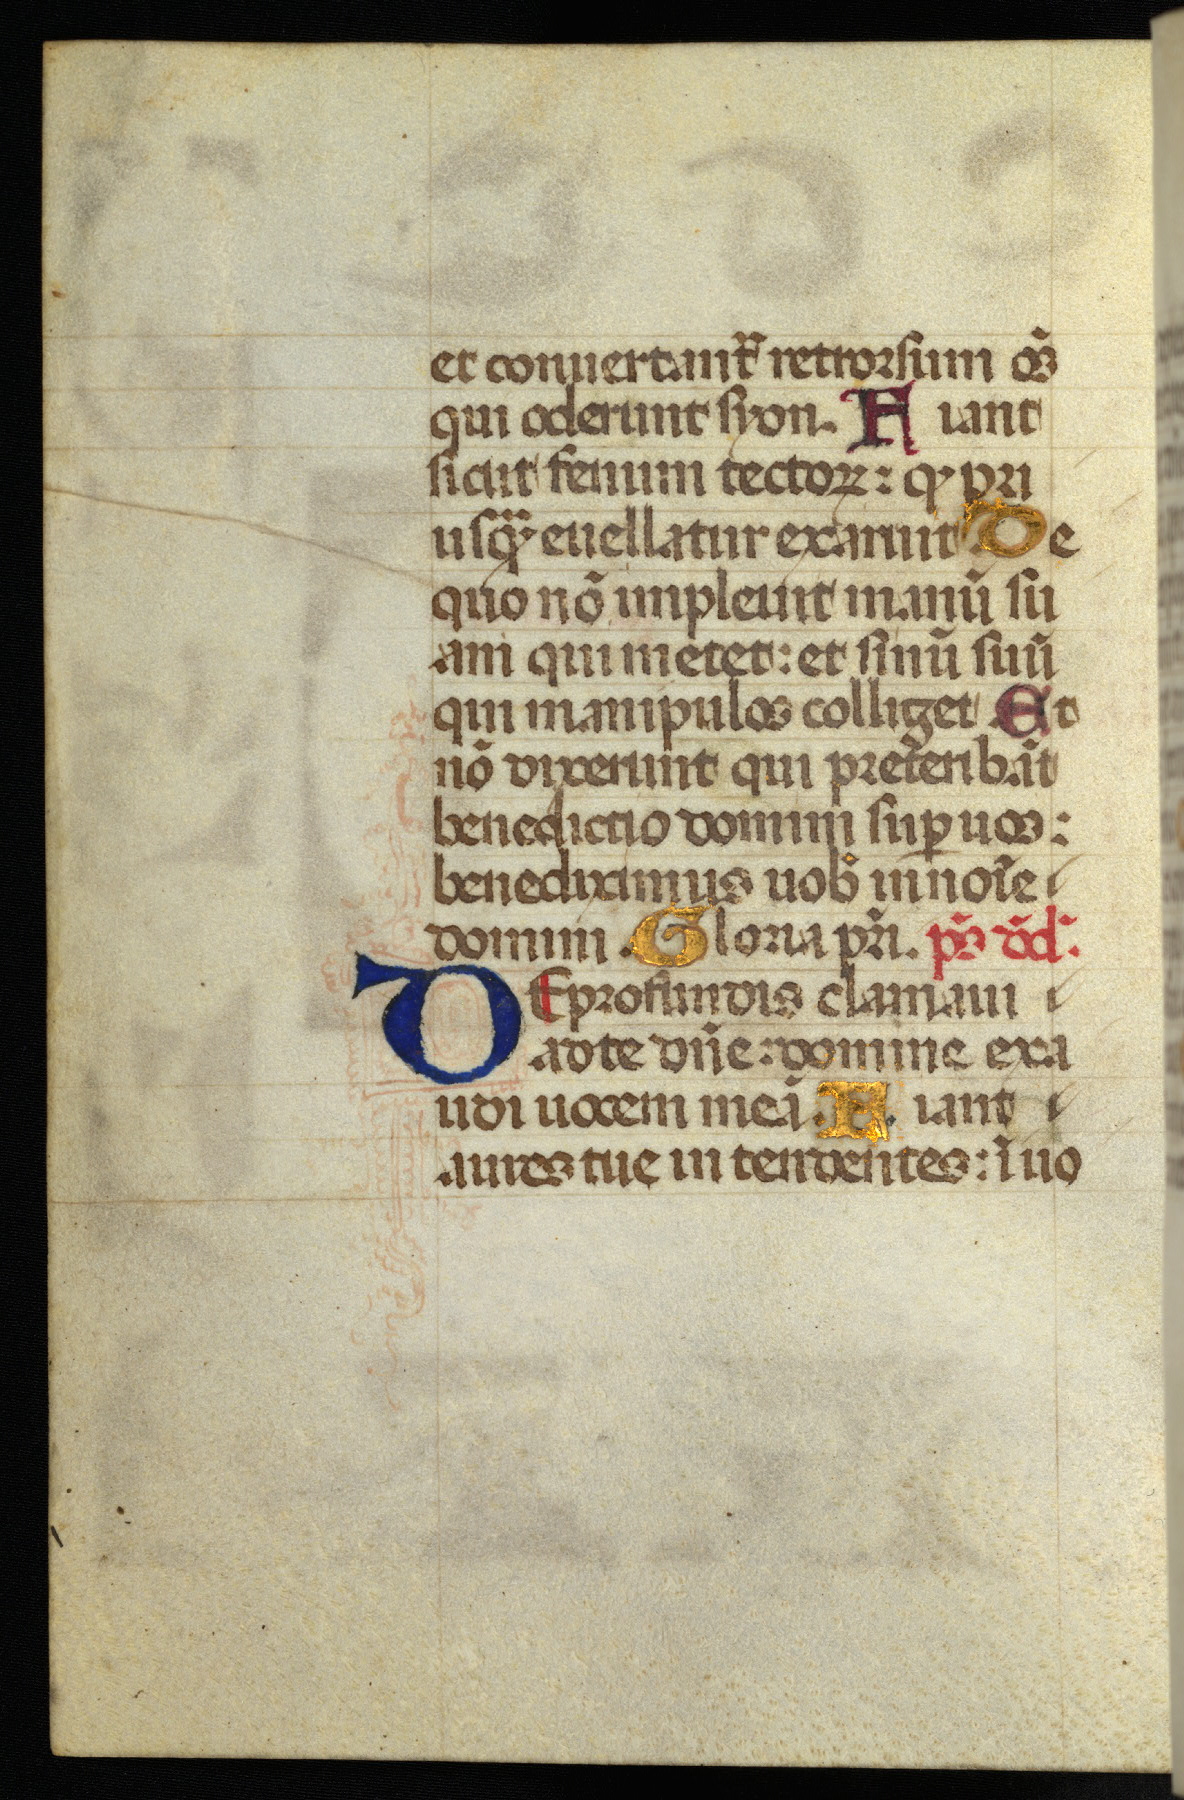 et conuertant᷑ retrorsum oẽs
qui oderunt syon. F iant
sicut fenum tectoꝝ: qꝫ pri
usqꝫ euellatur exaruit. De
quo nõ impleuit manũ su
am qui metet: et sinũ suũ
qui manipulos colliget. Et
nõ dixerunt qui preteribãt
benedictio domini suꝑ uos:
benediximus uob̃ in noĩe
domini. Gloria pr̃i. ps̃ dd̃.
DE profundis clamaui
ad te dñe: domine exa
udi uocem meã. F iant
aures tuę in tendentes: ĩ uo